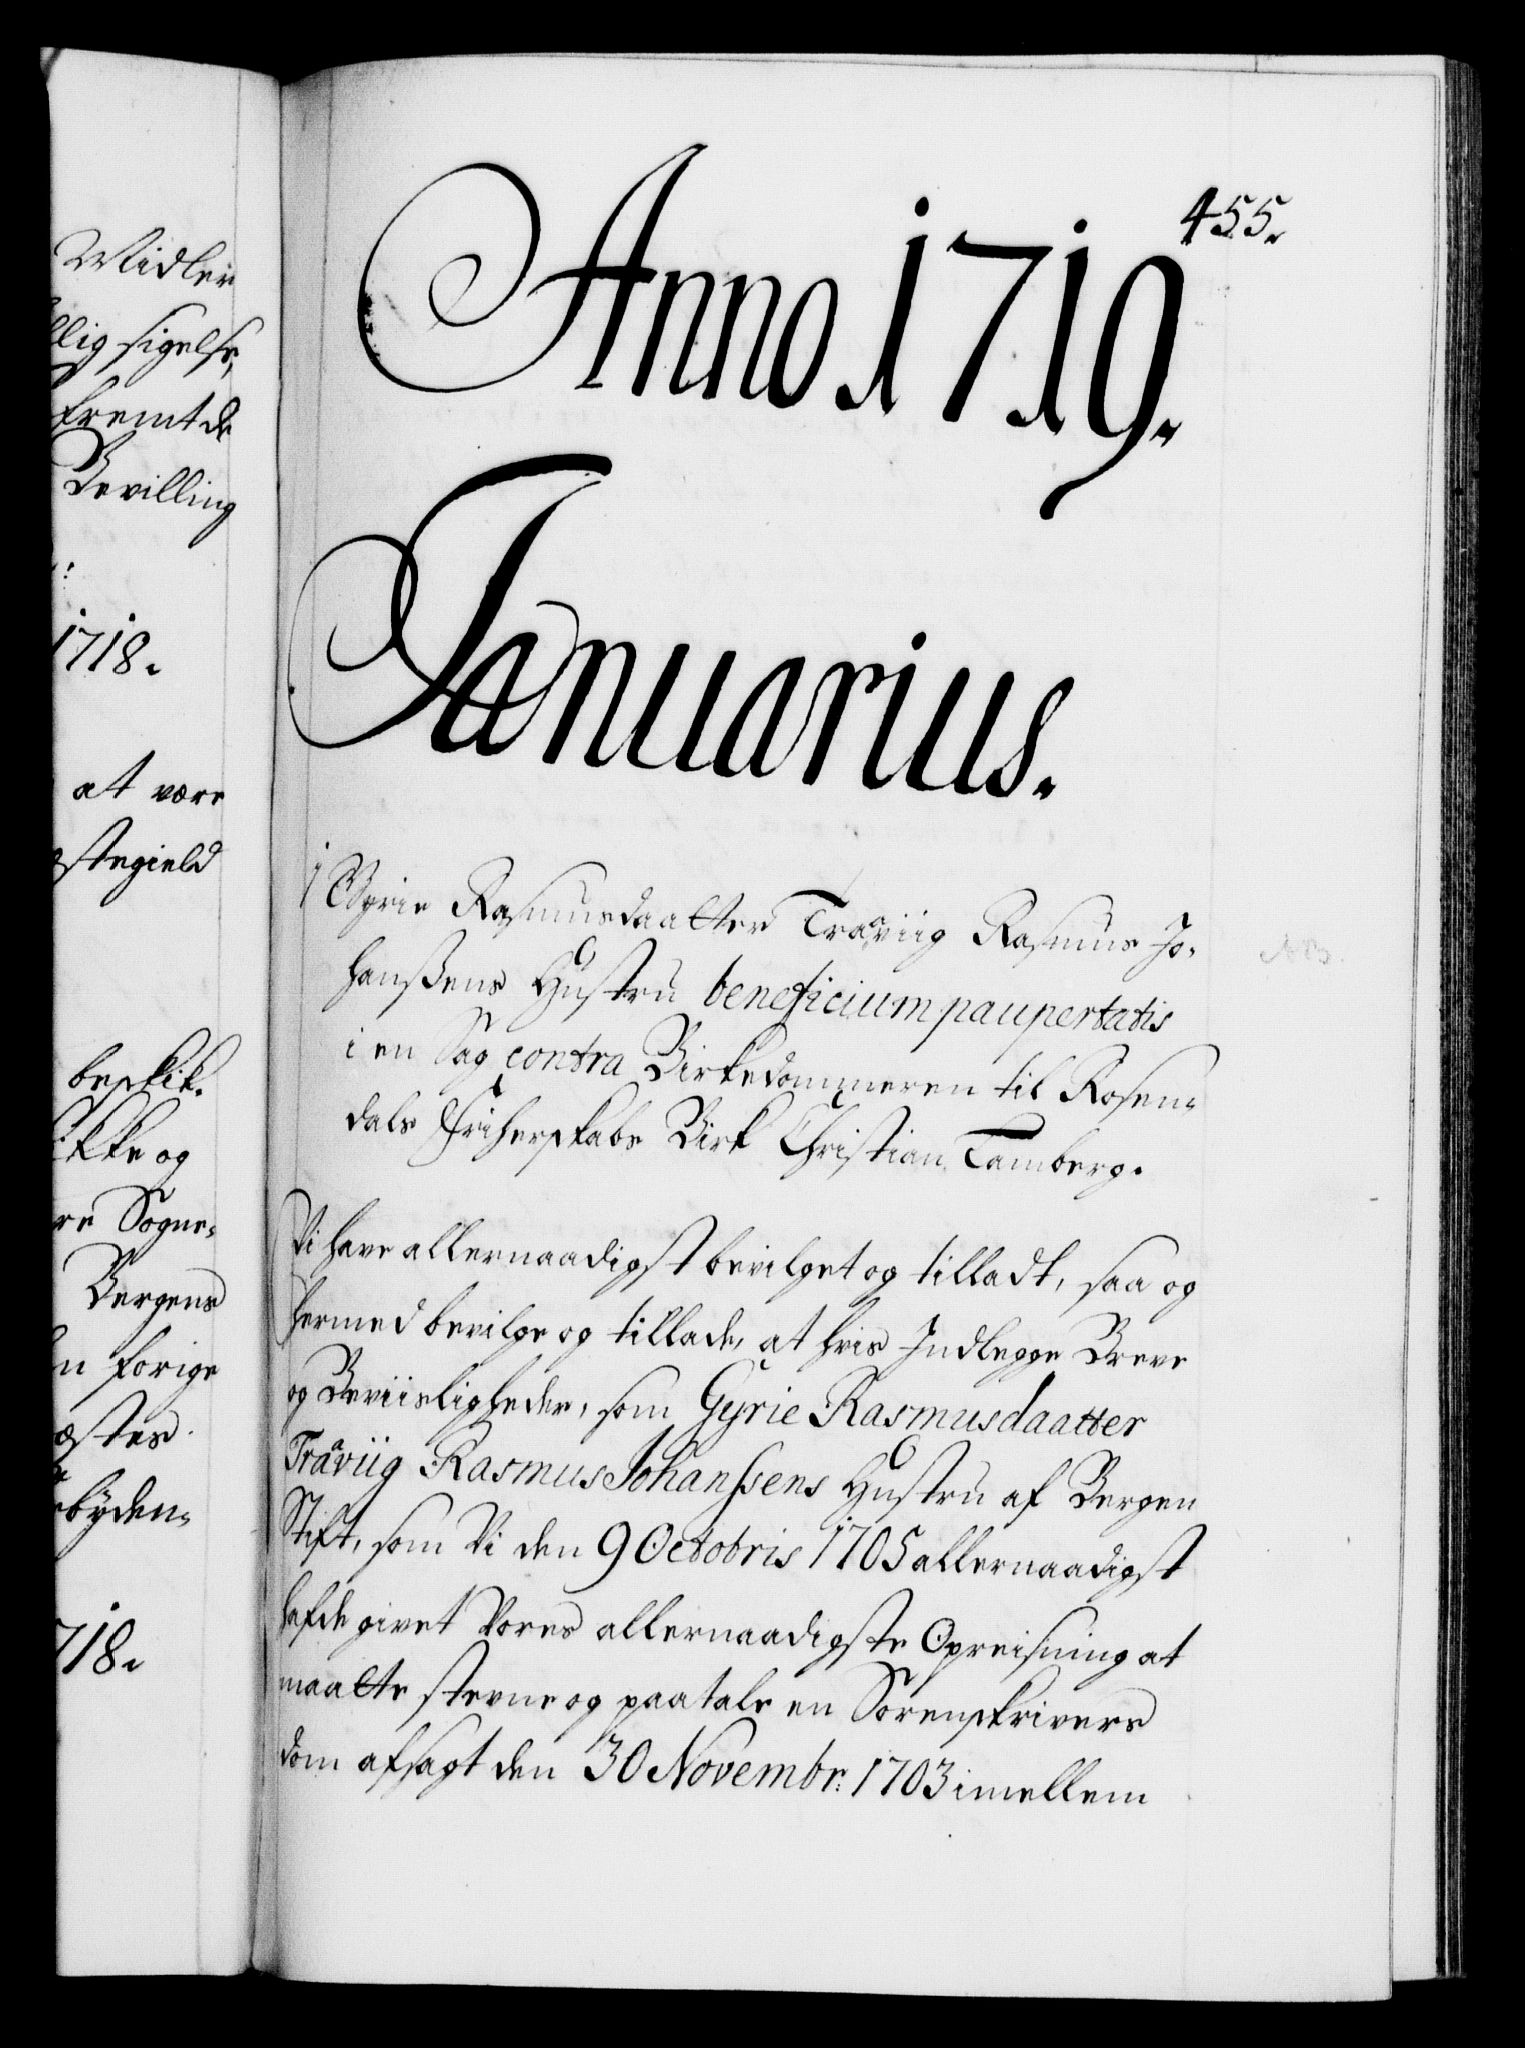 Midler
llig sigelse,
fremt de
Bevilling
1718.
at være
estegield
beskik-
ikke og
re Sogne-
Bergens
n forige
æstes
byden-
718.
455.
Anno 1719.
Januarius.
1 Gyrie Rasmusdaatter Traaviig Rasmus Jo-
hanßens Hustru beneficium paupertatis
i en Sag contra Birkedommeren til Rosen-
dals Friherskabs Birk Christian Tamberg.
Vi have allernaadigst bevilget og tilladt, saa og
hermed bevilge og tillade, at hvis Indlegge Breve
og Beviisligheder, som Gyrie Rasmusdaatter
Tråviig Rasmus Johanssens Hustru af Bergen
Stift, som Vi den 9 Octobris 1705 allernaadigst
hafde givet Vores allernaadigste Opreisning at
maatte stevne og paatale en Sorenskrivers
dom afsagt den 30 Novembr: 1703 imellem